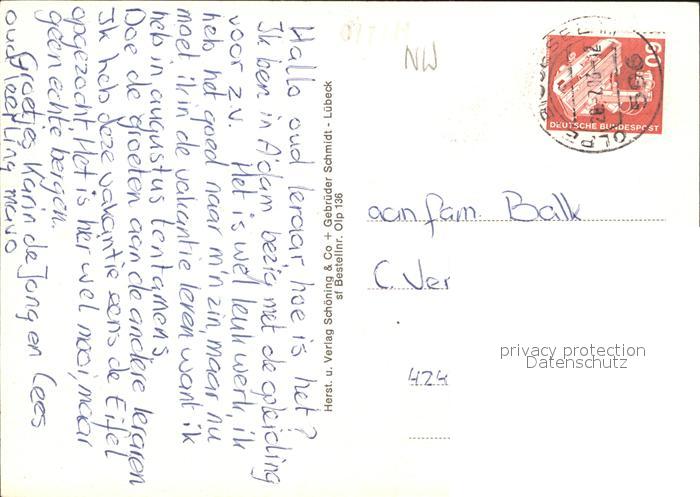 Hallo oud leraar hoe is het?
Ik ben in A'dam bezig met de opleiding
voor z.v. Het is wel leuk werk, ik
heb het goed naar m'n zin, maar nu
moet ik in de vakantie leren want ik
heb in augustus tentamens
Doe de groeten aan de andere leraren
Ik heb deze vakantie eens de Eifel
opgezocht. Het is hier wel mooi, maar
geen echte bergen.
Groetjes Karin de Jong en Cees
oud leerling mavo
Herst. u. Verlag Schöning & Co + Gebrüder Schmidt - Lübeck
sf Bestellnr. Olp 136
NW
60
DEUTSCHE BUNDESPOST
OLPE
aan fam. Balk
C. Ver
424
privacy protection
Datenschutz